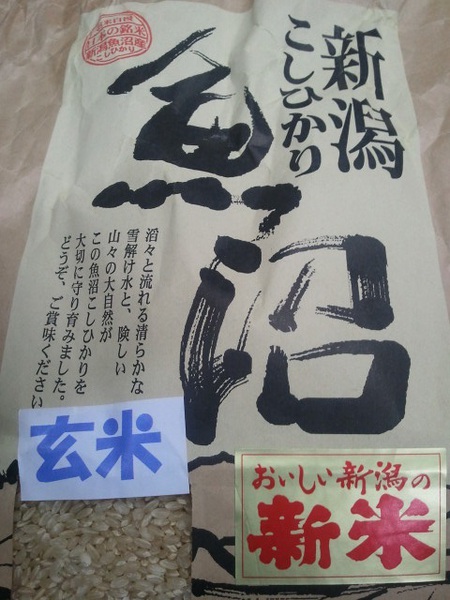 日本の銘米
新潟魚沼産
こしひかり
新潟
こしひかり
魚沼
滔々と流れる清らかな
雪解け水と、険しい
山々の大自然が
この魚沼こしひかりを
大切に守り育みました。
どうぞ、ご賞味ください
玄米
おいしい新潟の
新米